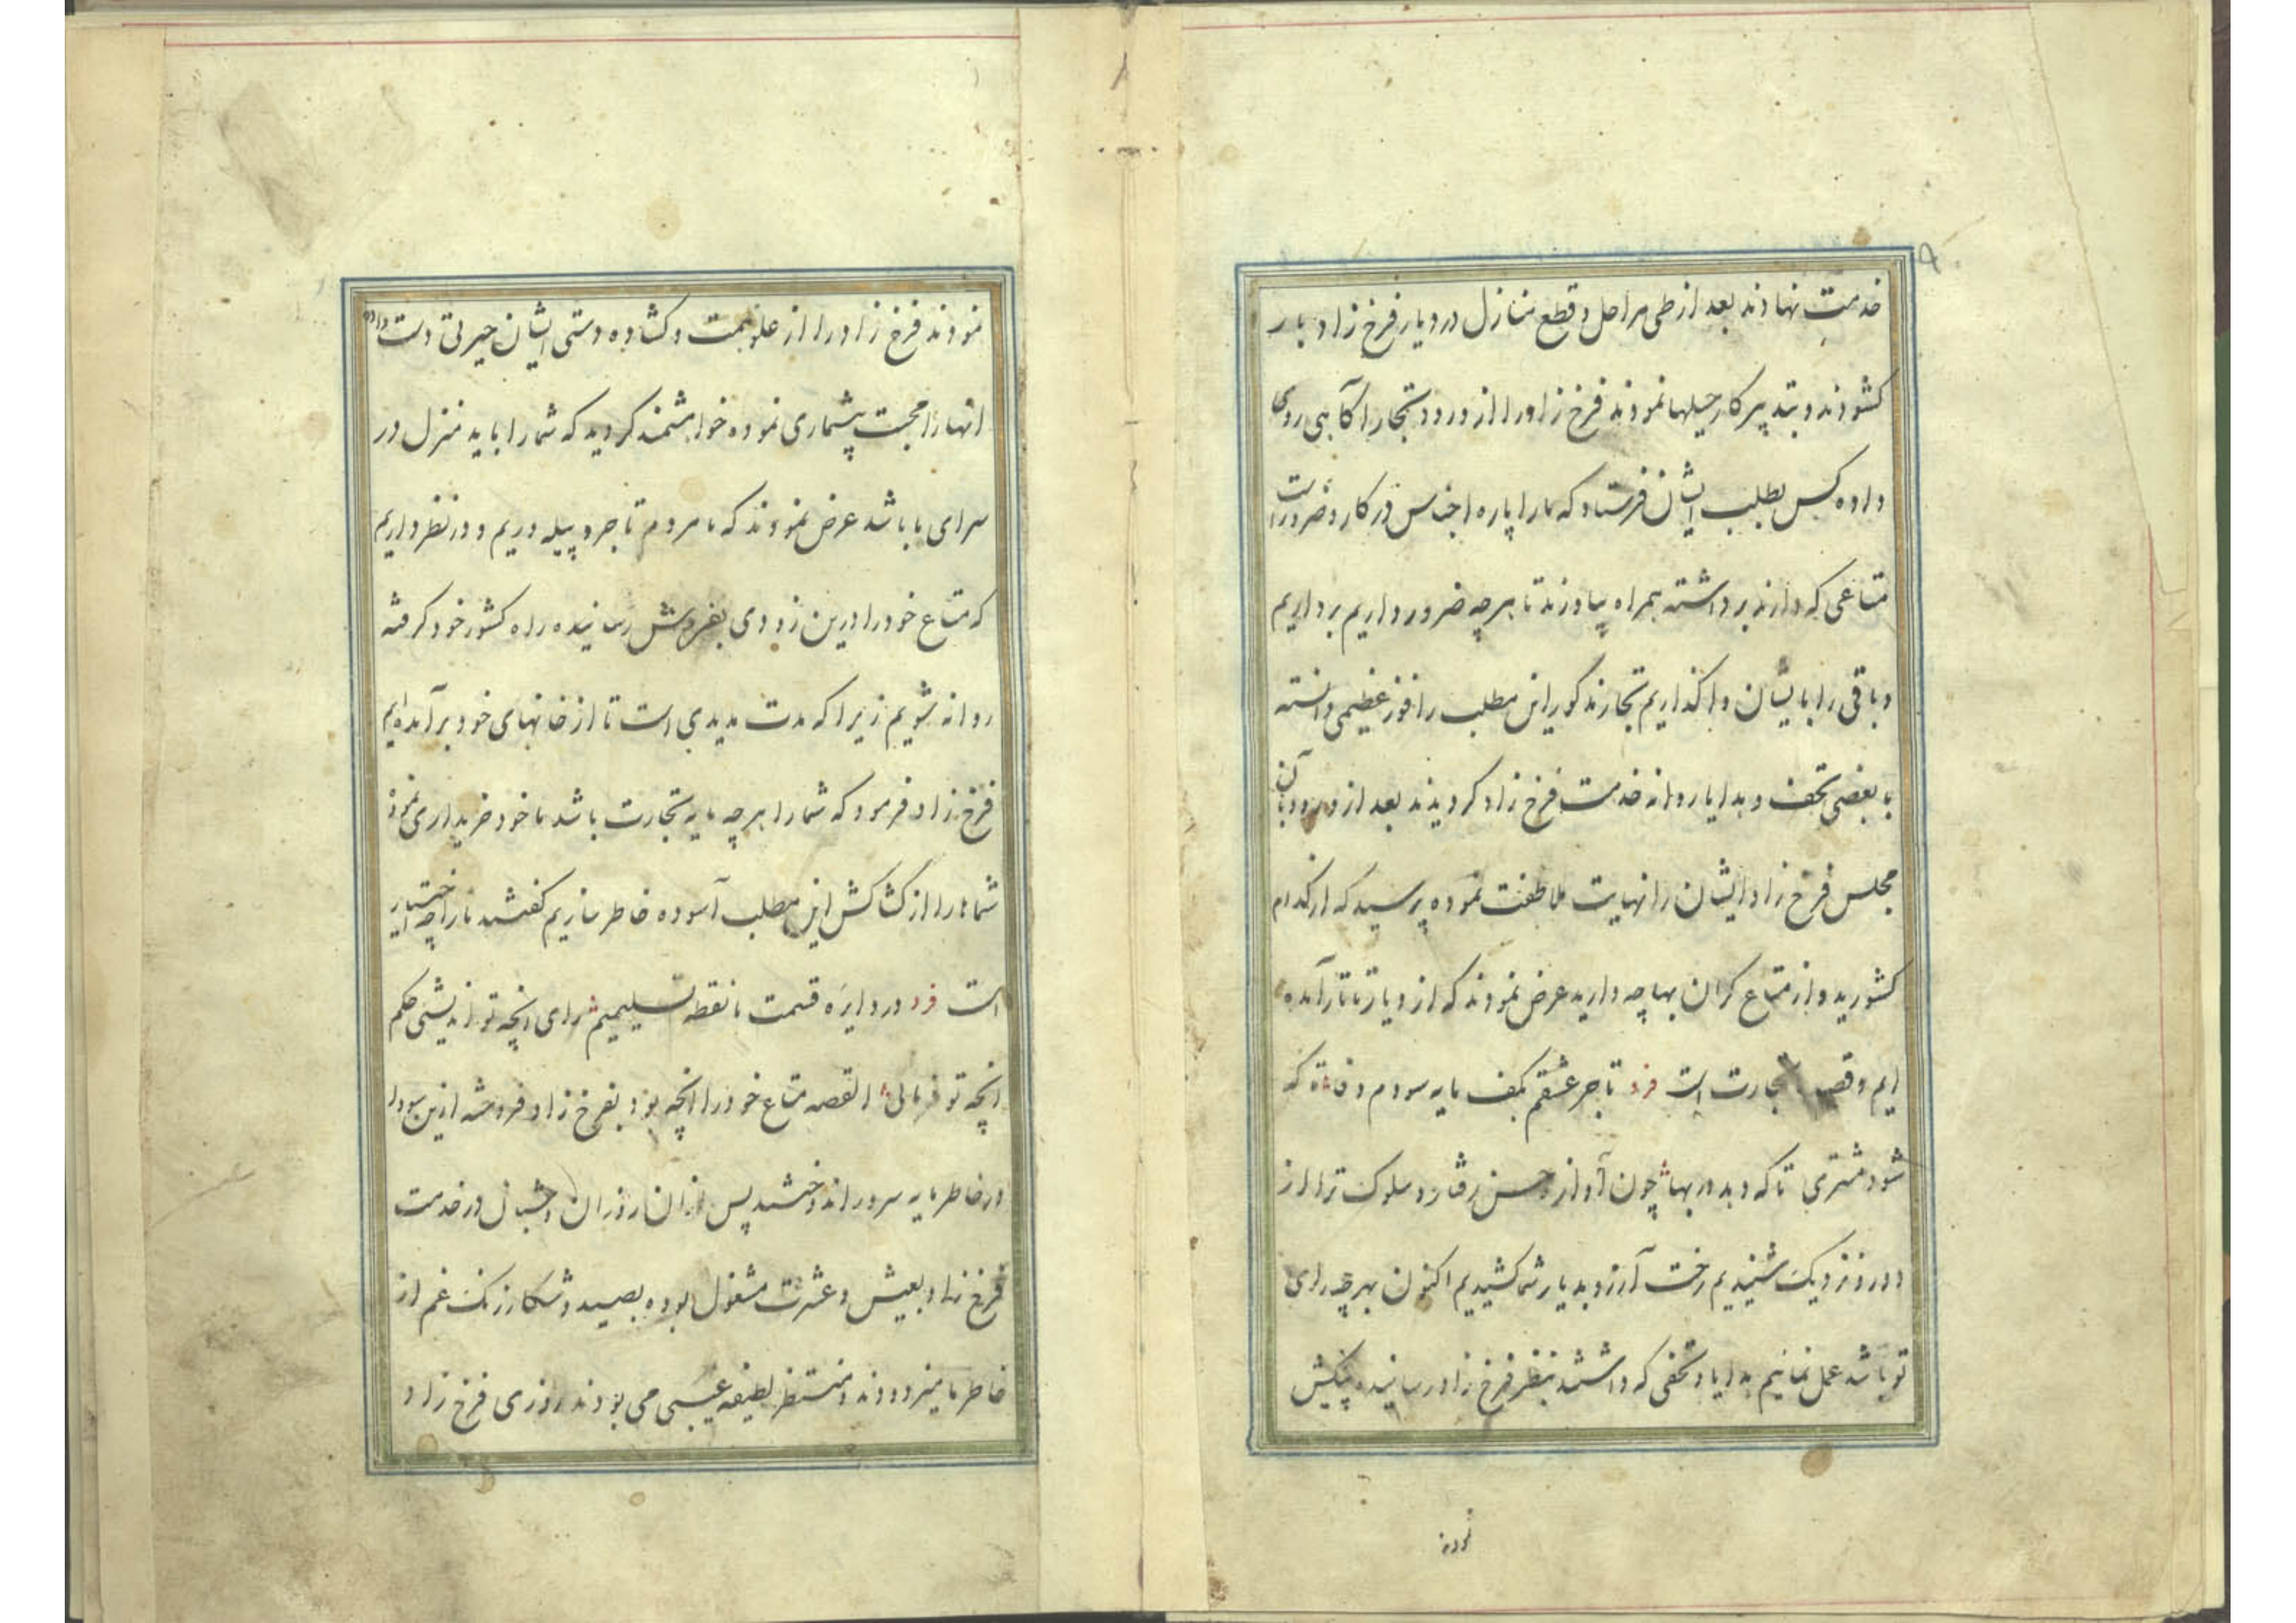 ۹
خدمت نهادند بعد از طی مراحل و قطع منازل در دیار فرخ زاد بار
کشودند و بتدبیر کار حیلها نمودند فرخ زاد را از ورود تجار آگاهی روی
داده کس بطلب ایشان فرستاد که ما را پاره اجناس در کار و ضرور است
متاعی که دارند برداشته همراه بیاورند تا هر چه ضرور داریم برداریم
و باقی را بایشان واگذاریم تجار مذکور این مطلب را فوز عظیمی دانسته
با بعضی تحف و هدایا روانه خدمت فرخ زاد کردیدند بعد از ورود بآن
مجلس فرخ زاد ایشان را نهایت ملاطفت نموده پرسید که از کدام
کشورید و از متاع کران بها چه دارید عرض نمودند که از دیار تاتار آمده
ایم و قصد تجارت است فرد تاجر عشقم بکف مایه سودم وفا تا که
شود مشتری تا که دهد در بها چون آواز حسن رفتار و سلوک ترا از
دور و نزدیک شنیدیم رخت آرزو بدیار شما کشیدیم اکنون بهر چه رای
تو باشد عمل نمائیم هدایا و تحفی که داشتند بنظر فرخ زاد رسانیده پیشکش
نمودند
نمودند فرخ زاد را از علو همت و کشاده دستی ایشان حیرتی دست داده
انها را محبت بیشماری نموده خواهشمند کردید که شما را باید منزل در
سرای ما باشد عرض نمودند که ما مردم تاجر و پیله وریم و در نظر داریم
که متاع خود را درین زودی بفروش رسانیده راه کشور خود کرفته
روانه شویم زیرا که مدت مدیدی است تا از خانهای خود برآمده ایم
فرخ زاد فرمود که شما را هر چه مایه تجارت باشد ما خود خریداری نموده
شماها را از کشاکش این مطلب آسوده خاطر سازیم کفتند ما را چه اختیار
است فرد در دایره قسمت ما نقطه تسلیمیم رای انچه تو اندیشی حکم
انچه تو فرمائی القصه متاع خود را انچه بود بفرخ زاد فروخته ازین سودا
در خاطر مایه سرور اندوختند پس از ان روزان و شبان در خدمت
فرخ زاد بعیش و عشرت مشغول بوده بصید و شکار زنک غم از
خاطر ها میزدودند و منتظر لطیفه غیبی می بودند روزی فرخ زاد